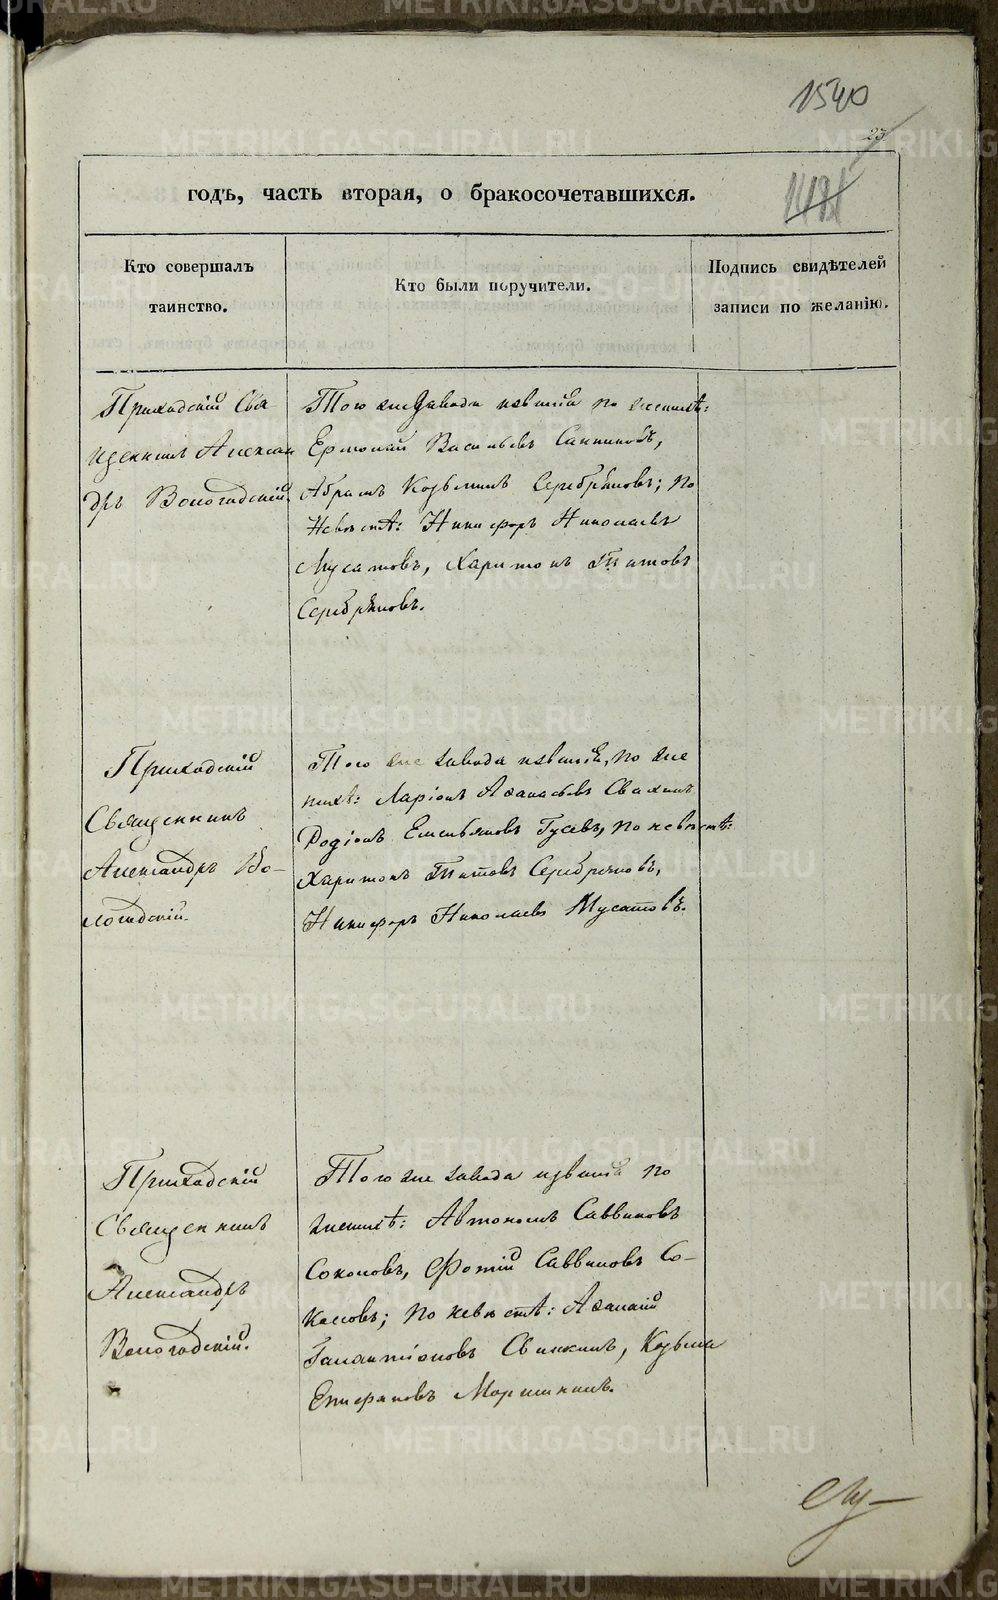 METRIKI.GASO-URAL.RU
1540
23
1481
годъ, часть вторая, о бракосочетавшихся.
Кто совершалъ
таинство.
Кто были поручители.
Подпись свидѣтелей
записи по желанію.
Приходскій Свя-
щенникъ Алексан
дръ Вологодскій.
Того же завода жители по женихѣ:
Ермолай Васильевъ Санниковъ,
Абрамъ Козьминъ Серебряковъ; по
Невѣстѣ: Никифоръ Николаевъ
Мусатовъ, Харитонъ Титовъ
Серебряковъ.
Приходскій
Священникъ
Александръ Во-
логодскій.
Того же завода жители, по же
нихѣ: Ларіонъ Аѳанасьевъ
Родіонъ Емельяновъ Гусевъ, по невѣстѣ:
Харитонъ Титовъ Серебряковъ,
Никифоръ Николаевъ Мусатовъ.
Приходскій
Священникъ
Александръ
Вологодскій.
Того же завода жители по
женихѣ: Автономъ Саввиновъ
Соколовъ, Фотій Саввиновъ Со-
коловъ; по невѣстѣ:
Галактіоновъ Свинкинъ, Козьма
Епифановъ Моршининъ.